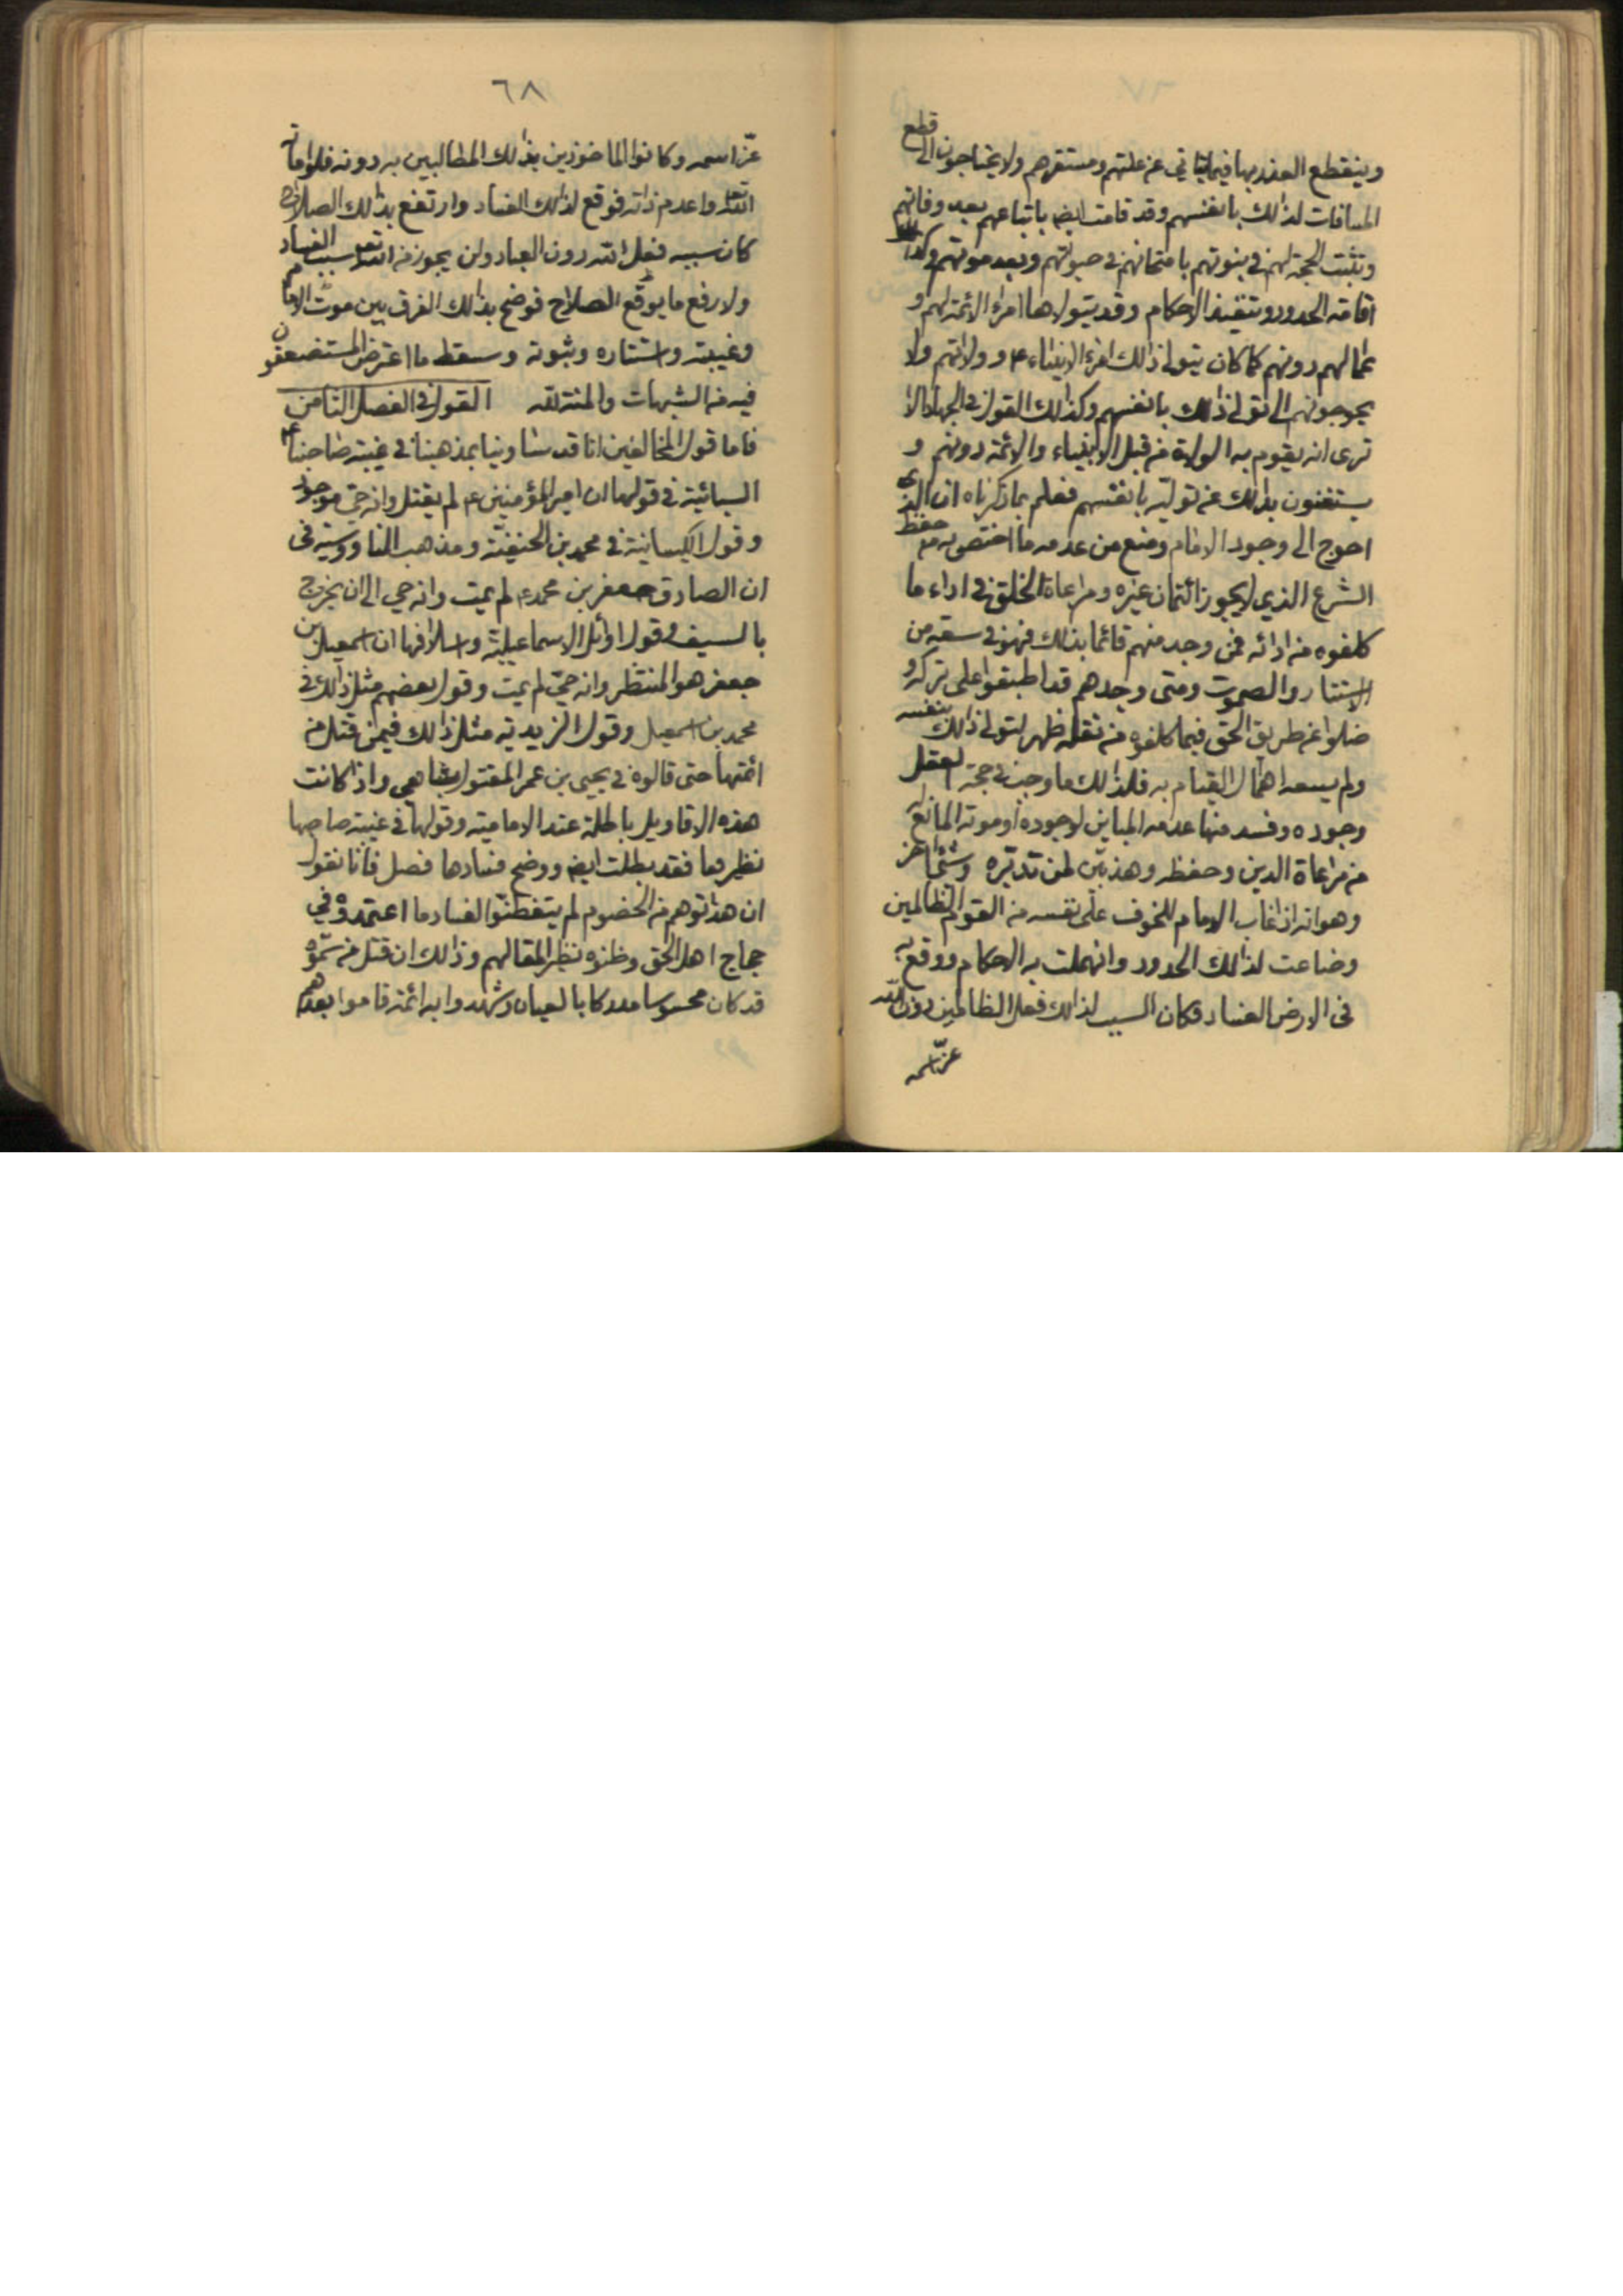 وينقطع العذر بها فيما يتأتي عن علتهم ومستقرهم ولا يحتاجون الى قطع
المسافات لذلك بانفسهم وقد قامت ايضا باتباعهم بعد وفاتهم
وتثبت الحجة لهم في نبوتهم بامتحانهم في حيوتهم وبعد موتهم وكذا
اقامة الحدود وتنفيذ الاحكام وقد يتولاها امراء الائمة لهم و
عمالهم دونهم كما كان يتولى ذلك امراء الانبياء ع و ولاتهم ولا
يحوجونهم الى تولى ذلك بانفسهم وكذلك القول في الجهاد الا
ترى انه يقوم به الولاة من قبل الانبياء والائمة دونهم و
يستغنون بذلك عن توليه بانفسهم فعلم بما ذكرناه ان الذي
احوج الى وجود الامام ومنع من عدمه ما اختص به من حفظ
الشرع الذي لا يجوز ائتمان غيره ومراعاة الخلق في اداء ما
كلفوه من ادائه فمن وجد منهم قائما بذلك فهو في سعة من
الاستتار والصموت ومتى وجدهم قد اطبقوا على تركه و
ضلوا عن طريق الحق فيما كلفوه من نقله ظهر لتولى ذلك بنفسه
ولم يسعه اهمال القيام به فلذلك ما وجب في حجة العقل
وجوده وفسد منها عدمه المباين لوجوده أو موته المانع له
من مراعاة الدين وحفظه وهذا بين لمن تدبره وشئ اخر
وهو انه اذا غاب الامام للخوف على نفسه من القوم الظالمين
وضاعت لذلك الحدود وانهملت به الاحكام ووقع به
في الارض الفساد فكان السبب لذلك فعل الظالمين دون الله
عز اسمه
٦٨
عز اسمه وكانوا الماخوذين بذلك المطالبين به دونه فلو اماته
الله تعالى واعدم ذاته فوقع لذلك الفساد وارتفع بذلك الصلاح
كان سببه فعل الله دون العباد ولن يجوز من الله تعالى سبب الفساد
ولا رفع ما يوقع الصلاح فوضح بذلك الفرق بين موت الامام
وغيبته واستتاره وثبوته وسقط ما اعترض المستضعفون
فيه من الشبهات والمنة لله القول في الفصل الثامن
فاما قول المخالفين انا قد ساوينا بمذهبنا في غيبة صاحبنا ع
السبائية في قولها ان امير المؤمنين ع لم يقتل وانه حي موجود
وقول الكيسانية في محمد بن الحنفية ومذهب الناووسية في
ان الصادق جعفر بن محمد ع لم يمت وانه حي الى ان يخرج
بالسيف وقول اوائل الاسماعيلية واسلافها ان اسمعيل بن
جعفر هو المنتظر وانه حي لم يمت وقول بعضهم مثل ذلك في
محمد بن اسمعيل وقول الزيدية مثل ذلك فيمن قتل من
ائمتها حتى قالوه في يحيى بن عمر المقتول بشاهي واذا كانت
هذه الاقاويل باطلة عند الامامية وقولها في غيبة صاحبها
نظيرها فقد بطلت ايضا ووضح فسادها فصل فانا نقول
ان هذا توهم من الخصوم لم يتفطنوا لفساد ما اعتمدوه في
حجاج اهل الحق وظنوه نظير المقالهم وذلك ان قتل من سموه
قد كان محسوسا مدركا بالعيان وشهدوا به ائمة قاموا بعدهم